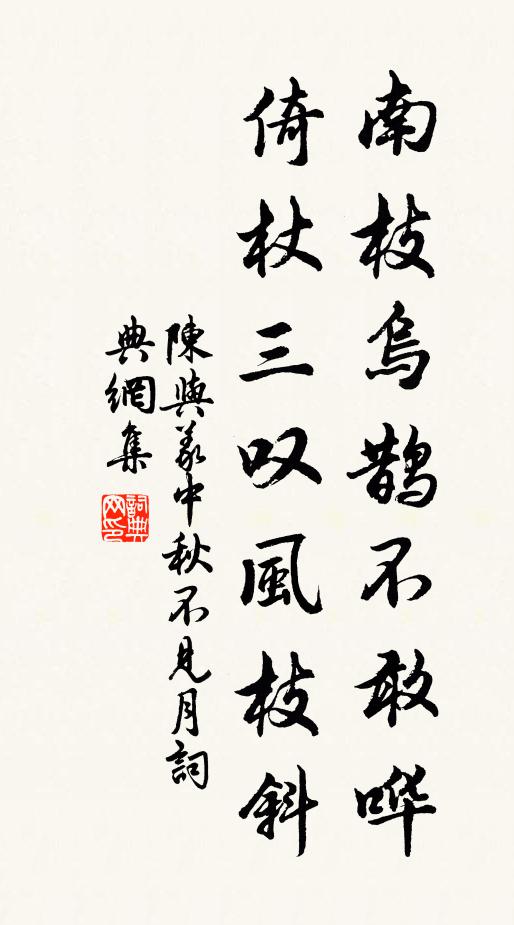 南枝烏鵲不敢哗
倚杖三叹風枝斜
陳與義中秋不見月詞
典網集
詞典網印